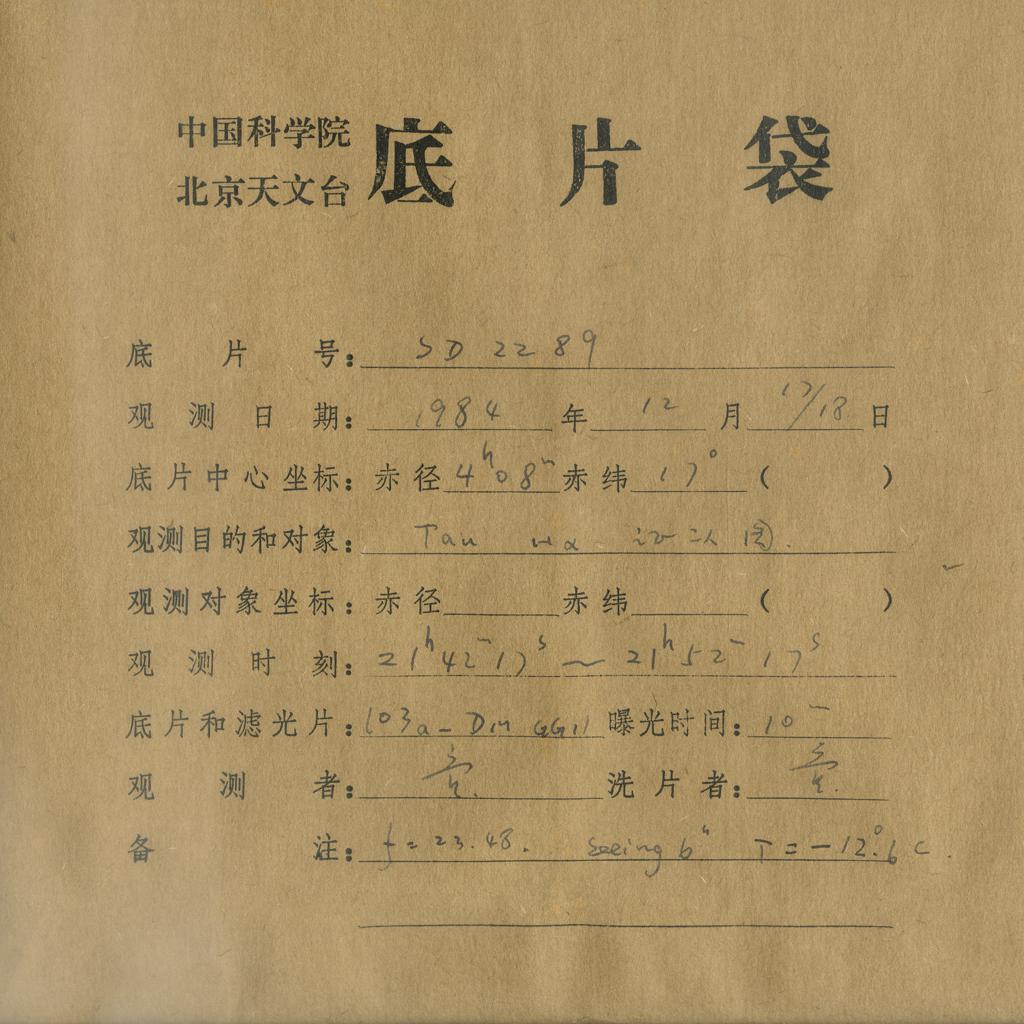 中国科学院
北京天文台
底片袋
底片号：SD 2289
观测日期：1984年12月17/18日
底片中心坐标：赤径4h08m赤纬17°（ ）
观测目的和对象：Tau Hα 证认图.
观测对象坐标：赤径 赤纬 （ ）
观测时刻：21h42m17s～21h52m17s
底片和滤光片：103a-D GG11 曝光时间：10m
观测者： 洗片者：
备注：f=23.48. seeing 6" T=-12°.6 C.